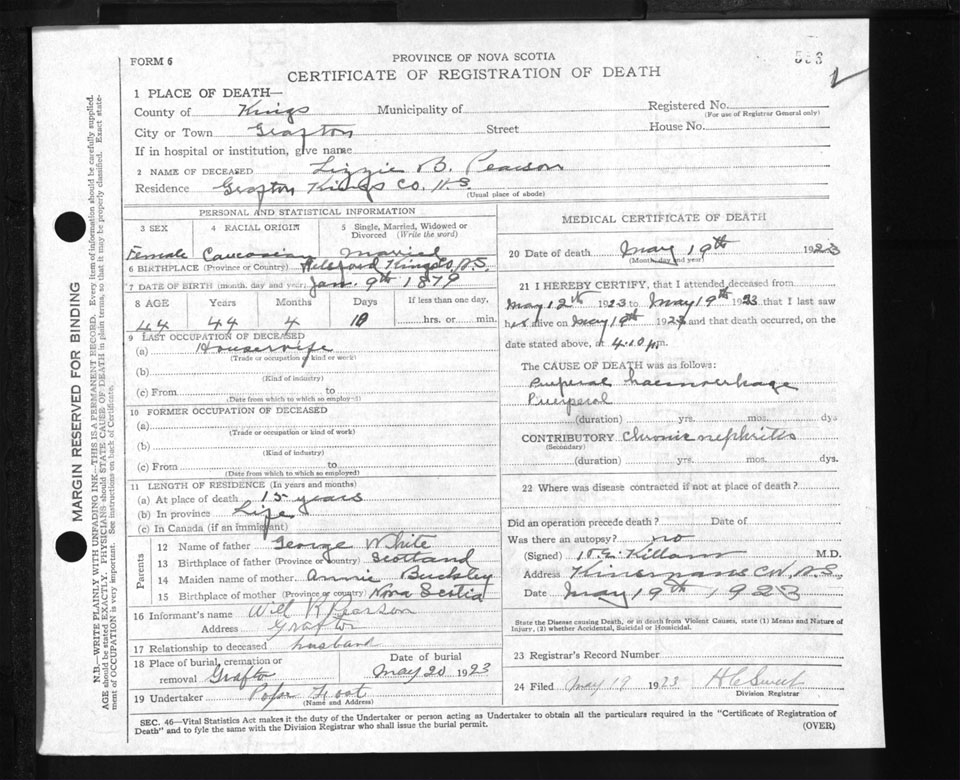 FORM 6
PROVINCE OF NOVA SCOTIA
583
CERTIFICATE OF REGISTRATION OF DEATH
1 PLACE OF DEATH—
County of Kings Municipality of Registered No.
(For use of Registrar General only)
City or Town Grafton Street House No.
If in hospital or institution, give name
2 NAME OF DECEASED Lizzie B. Pearson
Residence Grafton Kings Co. N.S.
(Usual place of abode)
PERSONAL AND STATISTICAL INFORMATION
3 SEX 4 RACIAL ORIGIN 5 Single, Married, Widowed or Divorced (Write the word)
Female Caucasian Married
6 BIRTHPLACE (Province or Country) Kings Co. N.S.
7 DATE OF BIRTH (month, day and year) Jan. 9th 1879
8 AGE Years Months Days If less than one day,
44 44 4 10 hrs. or min.
9 LAST OCCUPATION OF DECEASED
(a) Housewife
(Trade or occupation of kind or work)
(b)
(Kind of industry)
(c) From
(Date from which to which so employed)
10 FORMER OCCUPATION OF DECEASED
(a)
(Trade or occupation or kind of work)
(b)
(Kind of industry)
(c) From to
(Date from which to which so employed)
11 LENGTH OF RESIDENCE (In years and months)
(a) At place of death 15 years
(b) In province Life
(c) In Canada (if an immigrant)
Parents
12 Name of father George White
13 Birthplace of father (Province or country) Scotland
14 Maiden name of mother Annie Buckley
15 Birthplace of mother (Province or country) Nova Scotia
16 Informant's name Will R Pearson
Address Grafton
17 Relationship to deceased husband
18 Place of burial, cremation or removal Grafto
Date of burial May 20 1923
19 Undertaker
(Name and Address)
MEDICAL CERTIFICATE OF DEATH
20 Date of death May 19th 1923
(Month, day and year)
21 I HEREBY CERTIFY, that I attended deceased from
May 12th 1923 to May 19th 1923 that I last saw
her alive on May 19th 1923 and that death occurred, on the
date stated above, at 4.10 pm.
The CAUSE OF DEATH was as follows:
Puerperal haemorrhage
Puerperal
(duration) yrs. mos. dys
CONTRIBUTORY Chronic nephritis
(Secondary)
(duration) yrs. mos. dys.
22 Where was disease contracted if not at place of death?
Did an operation precede death? Date of
Was there an autopsy? no
(Signed) Killam M.D.
Address N.S.
Date May 19th 1923
State the Disease causing Death, or in death from Violent Causes, state (1) Means and Nature of
Injury, (2) whether Accidental, Suicidal or Homicidal.
23 Registrar's Record Number
24 Filed May 19 1923 H C Sweet
Division Registrar
SEC. 46—Vital Statistics Act makes it the duty of the Undertaker or person acting as Undertaker to obtain all the particulars required in the "Certificate of Registration of
Death" and to fyle the same with the Division Registrar who shall issue the burial permit.
(OVER)
MARGIN RESERVED FOR BINDING
N.B.—WRITE PLAINLY WITH UNFADING INK—THIS IS A PERMANENT RECORD. Every item of information should be carefully supplied.
AGE should be stated EXACTLY. PHYSICIANS should STATE CAUSE OF DEATH in plain terms, so that it may be properly classified. Exact state-
ment of OCCUPATION is very important. See instructions on back of Certificate.